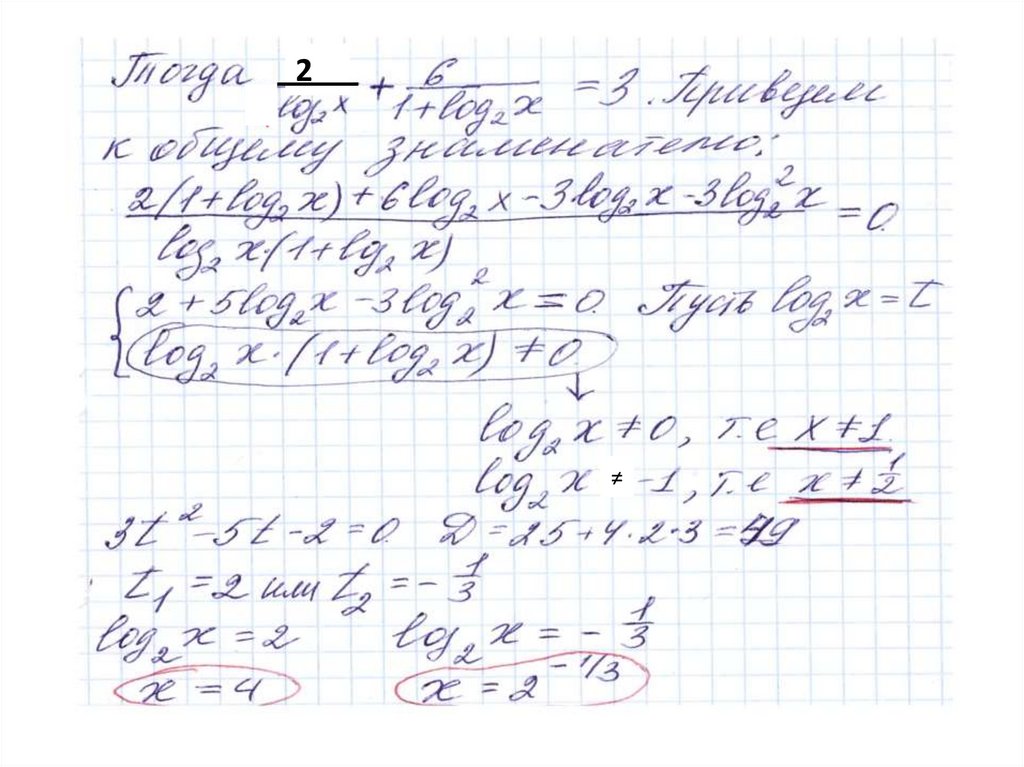 Тогда 2/log₂x + 6/(1+log₂x) = 3. Приведем
к общему знаменателю:
(2(1+log₂x)+6log₂x-3log₂x-3log₂²x)/(log₂x·(1+lg₂x)) = 0.
{2+5log₂x-3log₂²x=0. Пусть log₂x=t
log₂x·(1+log₂x)≠0.
↓
log₂x≠0, т.е x≠1.
log₂x ≠ -1, т.е x≠1/2
3t²-5t-2=0. Д=25+4·2·3=49
t₁=2 или t₂=-1/3
log₂x=2 log₂x=-1/3
x=4 x=2^(-1/3)